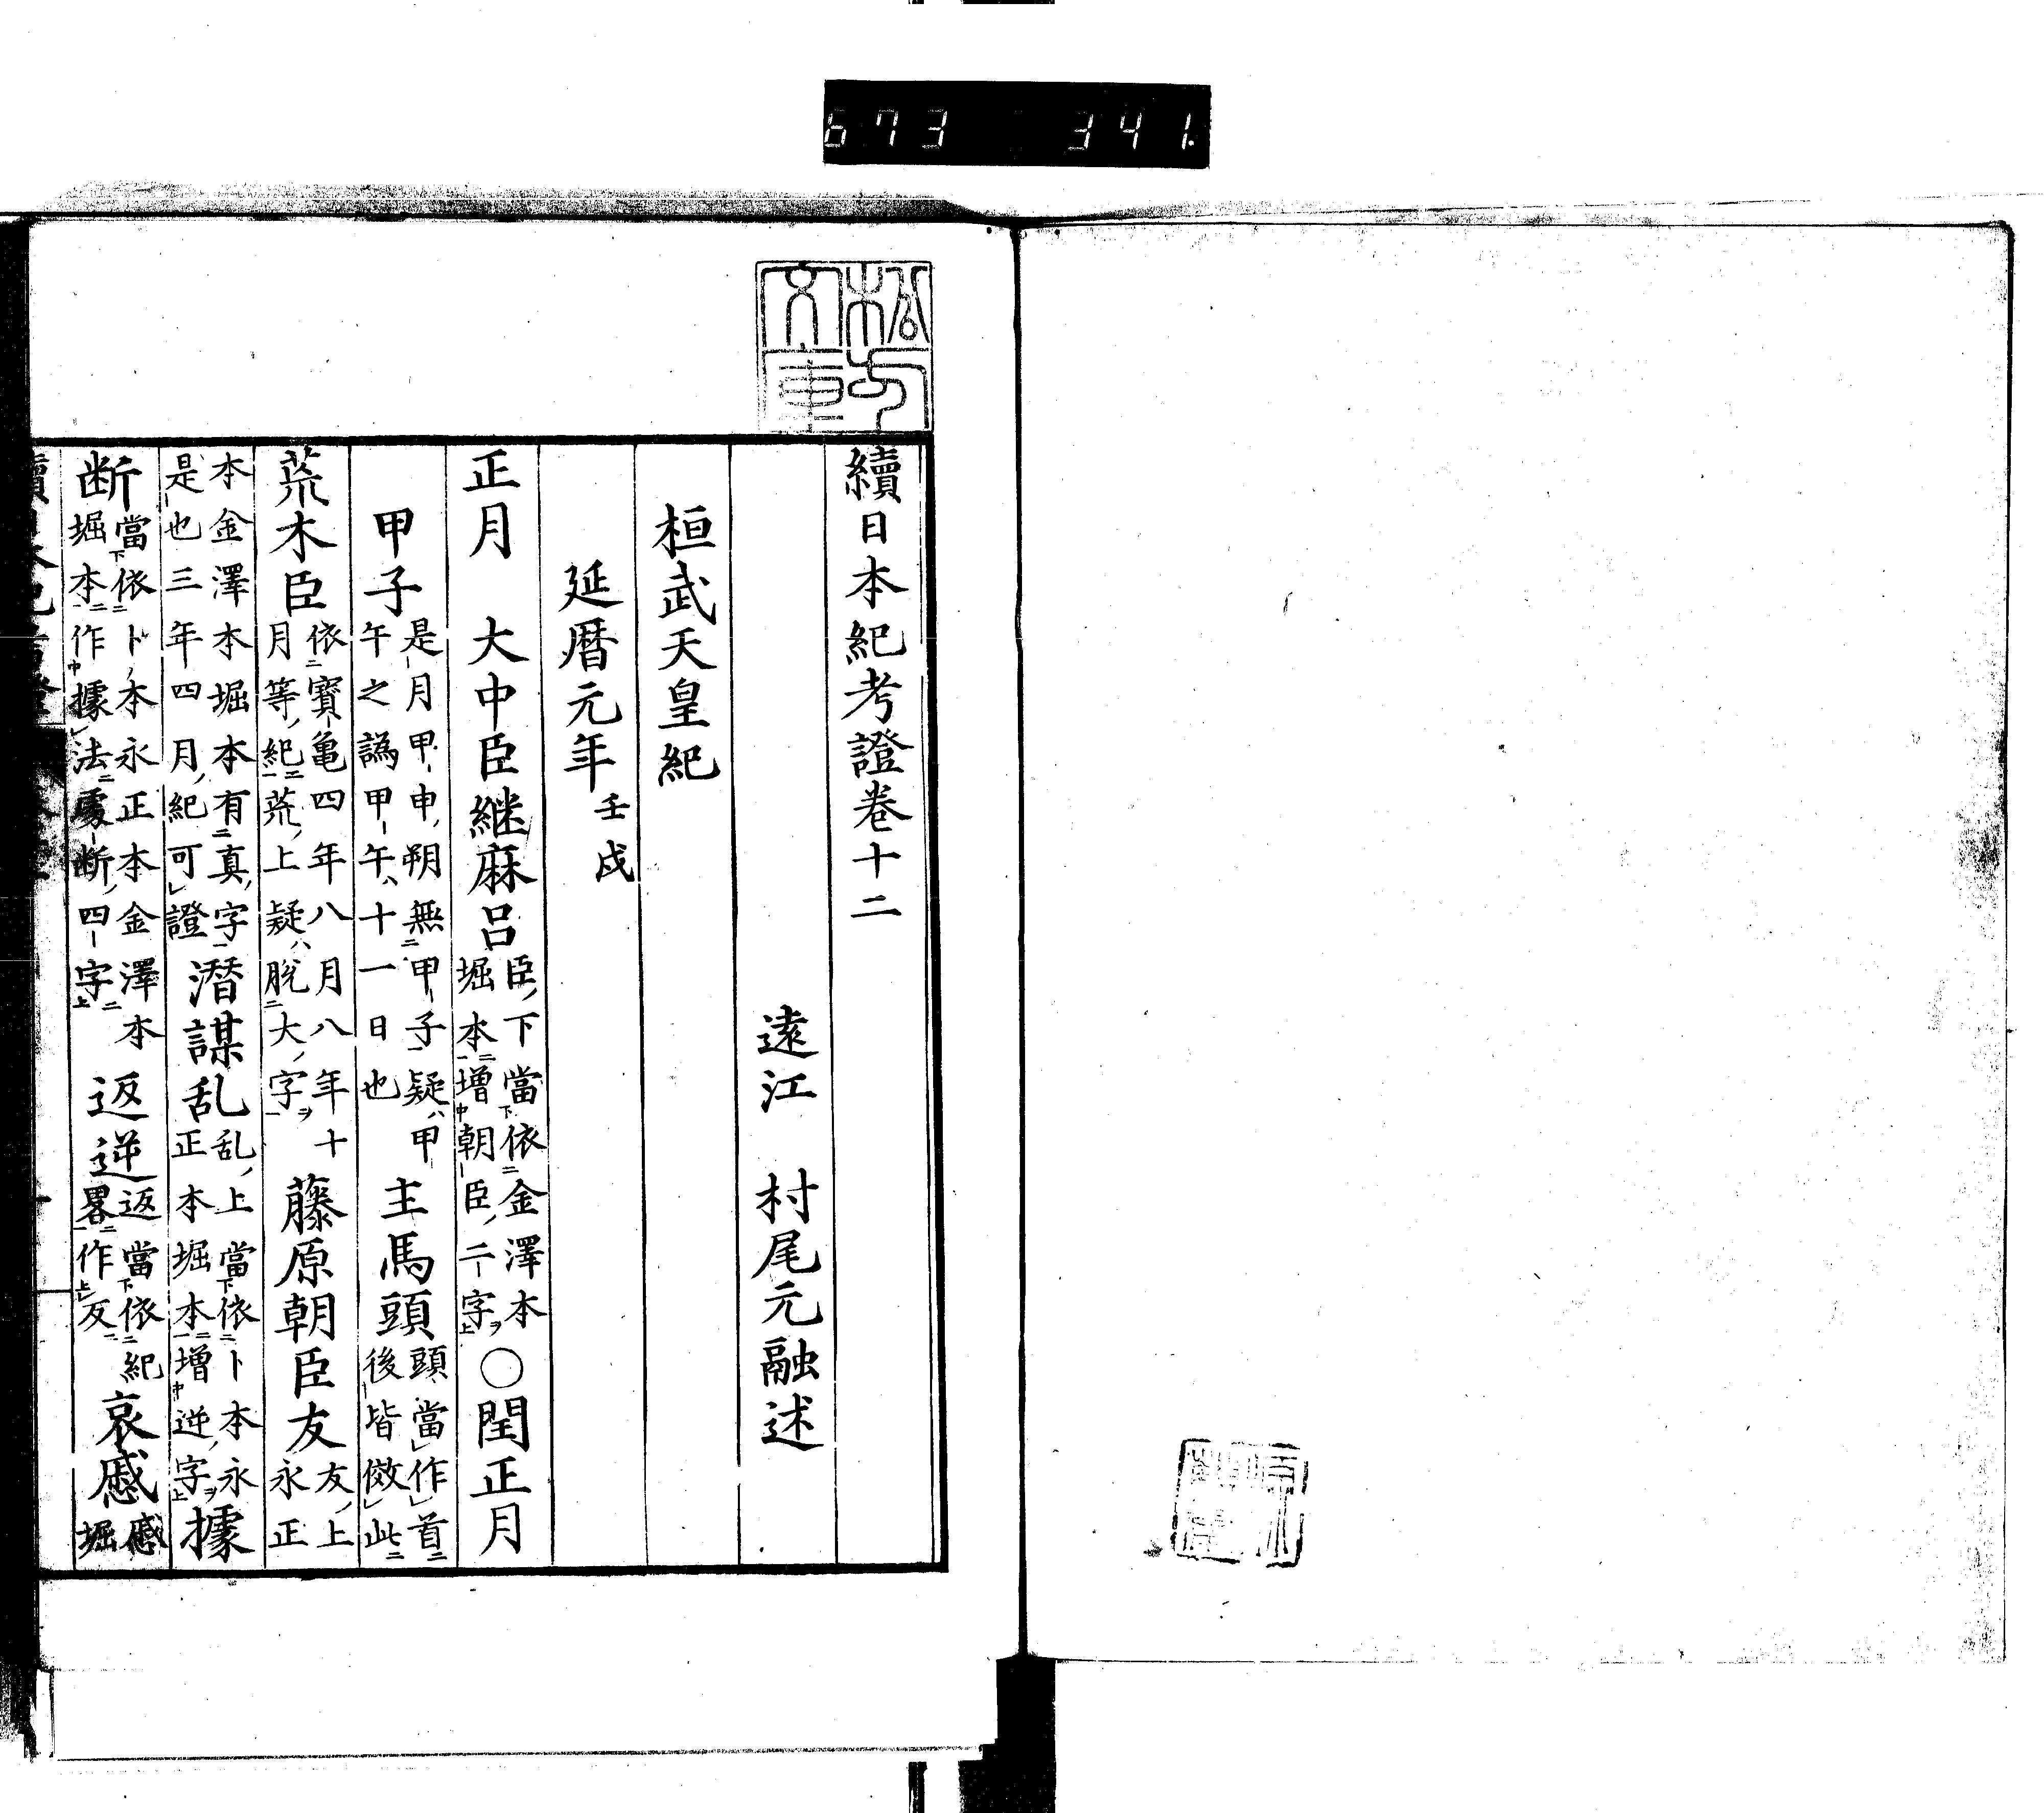 673 341.
松岡文庫
續日本紀考證卷十二
遠江 村尾元融述
桓武天皇紀
延暦元年 壬戌
正月 大中臣継麻呂 臣ノ下當依金澤本
堀本増朝臣ノ二字ヲ ○閏正月
甲子 是月甲申朔無甲子疑ハ甲
午之譌甲午ハ十一日也 主馬頭 頭當作首
後皆倣此
荒木臣 依寶亀四年八月八年十
月等ノ紀荒ノ上疑ハ脱大ノ字ヲ 藤原朝臣友 友ノ上
永正
本金澤本堀本有真ノ字
是也三年四月ノ紀可證 潜謀乱 乱ノ上當依卜本永
正本堀本増逆ノ字ヲ 據
断 當依卜ノ本永正本金澤本
堀本作據法處断ノ四字 返逆 返當依紀
畧作反 哀慼 慼
堀